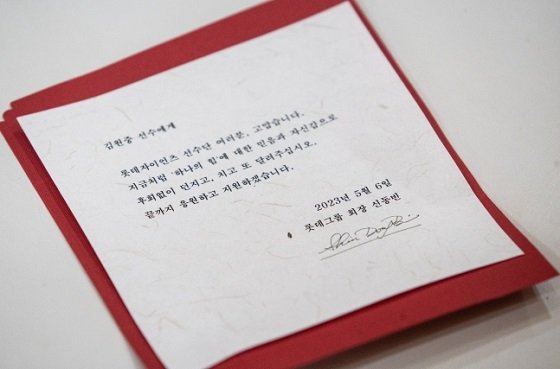 김원중 선수에게
롯데자이언츠 선수단 여러분, 고맙습니다.
지금처럼 '하나의 힘'에 대한 믿음과 자신감으로
후회없이 던지고, 치고 또 달려주십시오.
끝까지 응원하고 지원하겠습니다.
2023년 5월 6일
롯데그룹 회장 신동빈